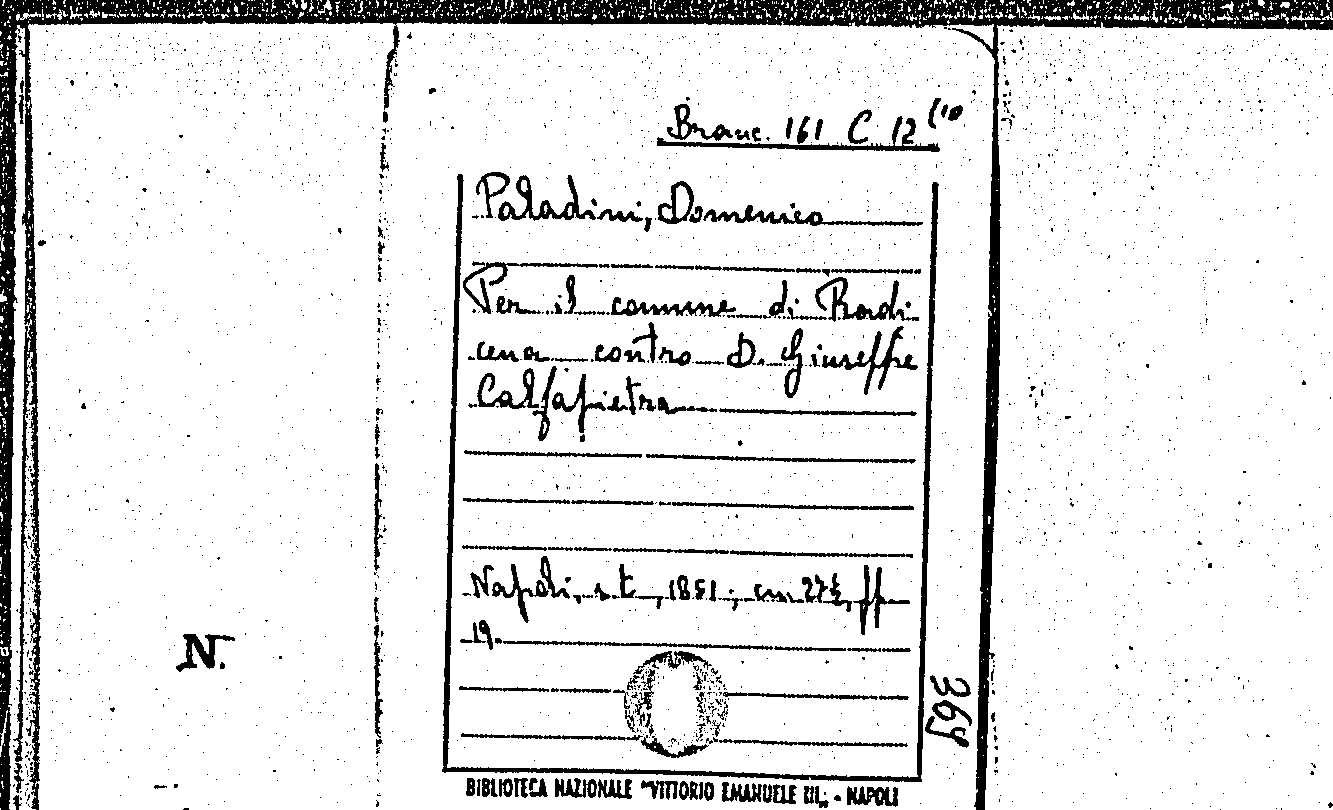 Branc. 161 C 12 (10
Paladini, Domenico
Per il comune di Radi
cena contro D. Giuseppe
Calfapietra
Napoli, s. t., 1851; cm 27½, pp
19.
N.
369
BIBLIOTECA NAZIONALE "VITTORIO EMANUELE III„ - NAPOLI